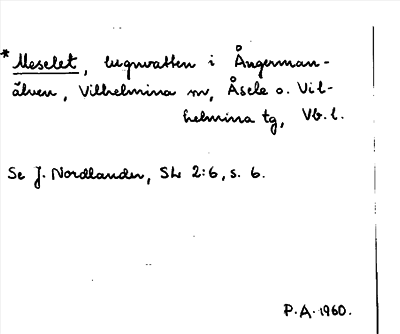 *Meselet, lugnvatten i Ångerman-
älven, Vilhelmina sn, Åsele o. Vil-
helmina tg, Vb. l.
Se J. Nordlander, SL 2:6, s. 6.
P.A. 1960.